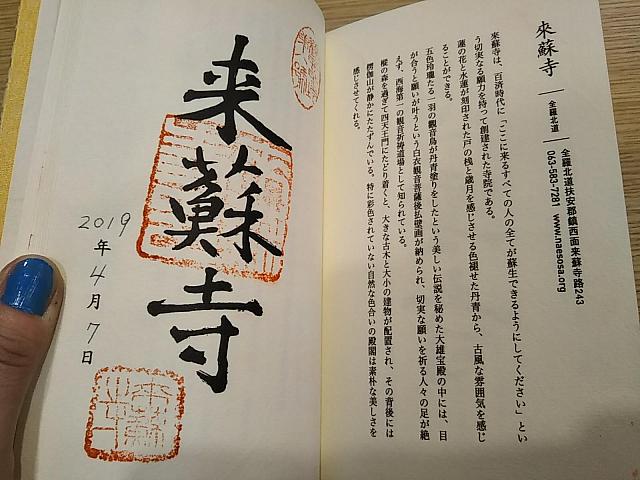 來蘇寺
全羅北道
全羅北道扶安郡鎮西面来蘇寺路243
063-583-7281 www.naesosa.org
来蘇寺は、百済時代に「ここに来るすべての人の全てが蘇生できるようにしてください」とい
う切実なる願力を持って創建された寺院である。
蓮の花と水蓮が刻印された戸の桟と歳月を感じさせる色褪せた丹青から、古風な雰囲気を感じ
ることができる。
五色玲瓏たる一羽の観音鳥が丹青塗りをしたという美しい伝説を秘めた大雄宝殿の中には、目
が合うと願いが叶うという白衣観音菩薩後払壁画が納められ、切実な願いを祈る人々の足が絶
えず、西海第一の観音祈祷道場として知られている。
樅の森を過ぎて四天王門にたどり着くと、大きな古木と大小の建物が配置され、その背後には
楞伽山が静かにたたずんでいる。特に彩色されていない自然な色合いの殿閣は素朴な美しさを
感じさせてくれる。
来蘇寺
2019年4月7日